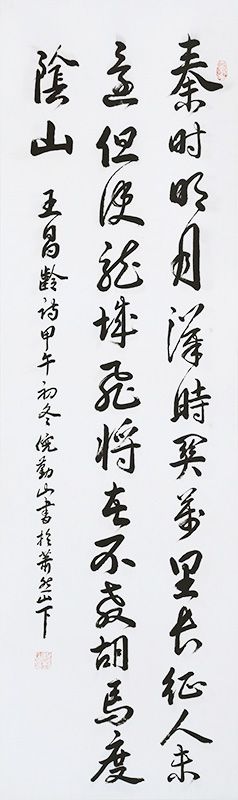 秦时明月漢時関萬里長征人未
還但使龍城飛将在不教胡馬度
陰山
王昌齡詩甲午初冬倪勤山書於蕭然山下